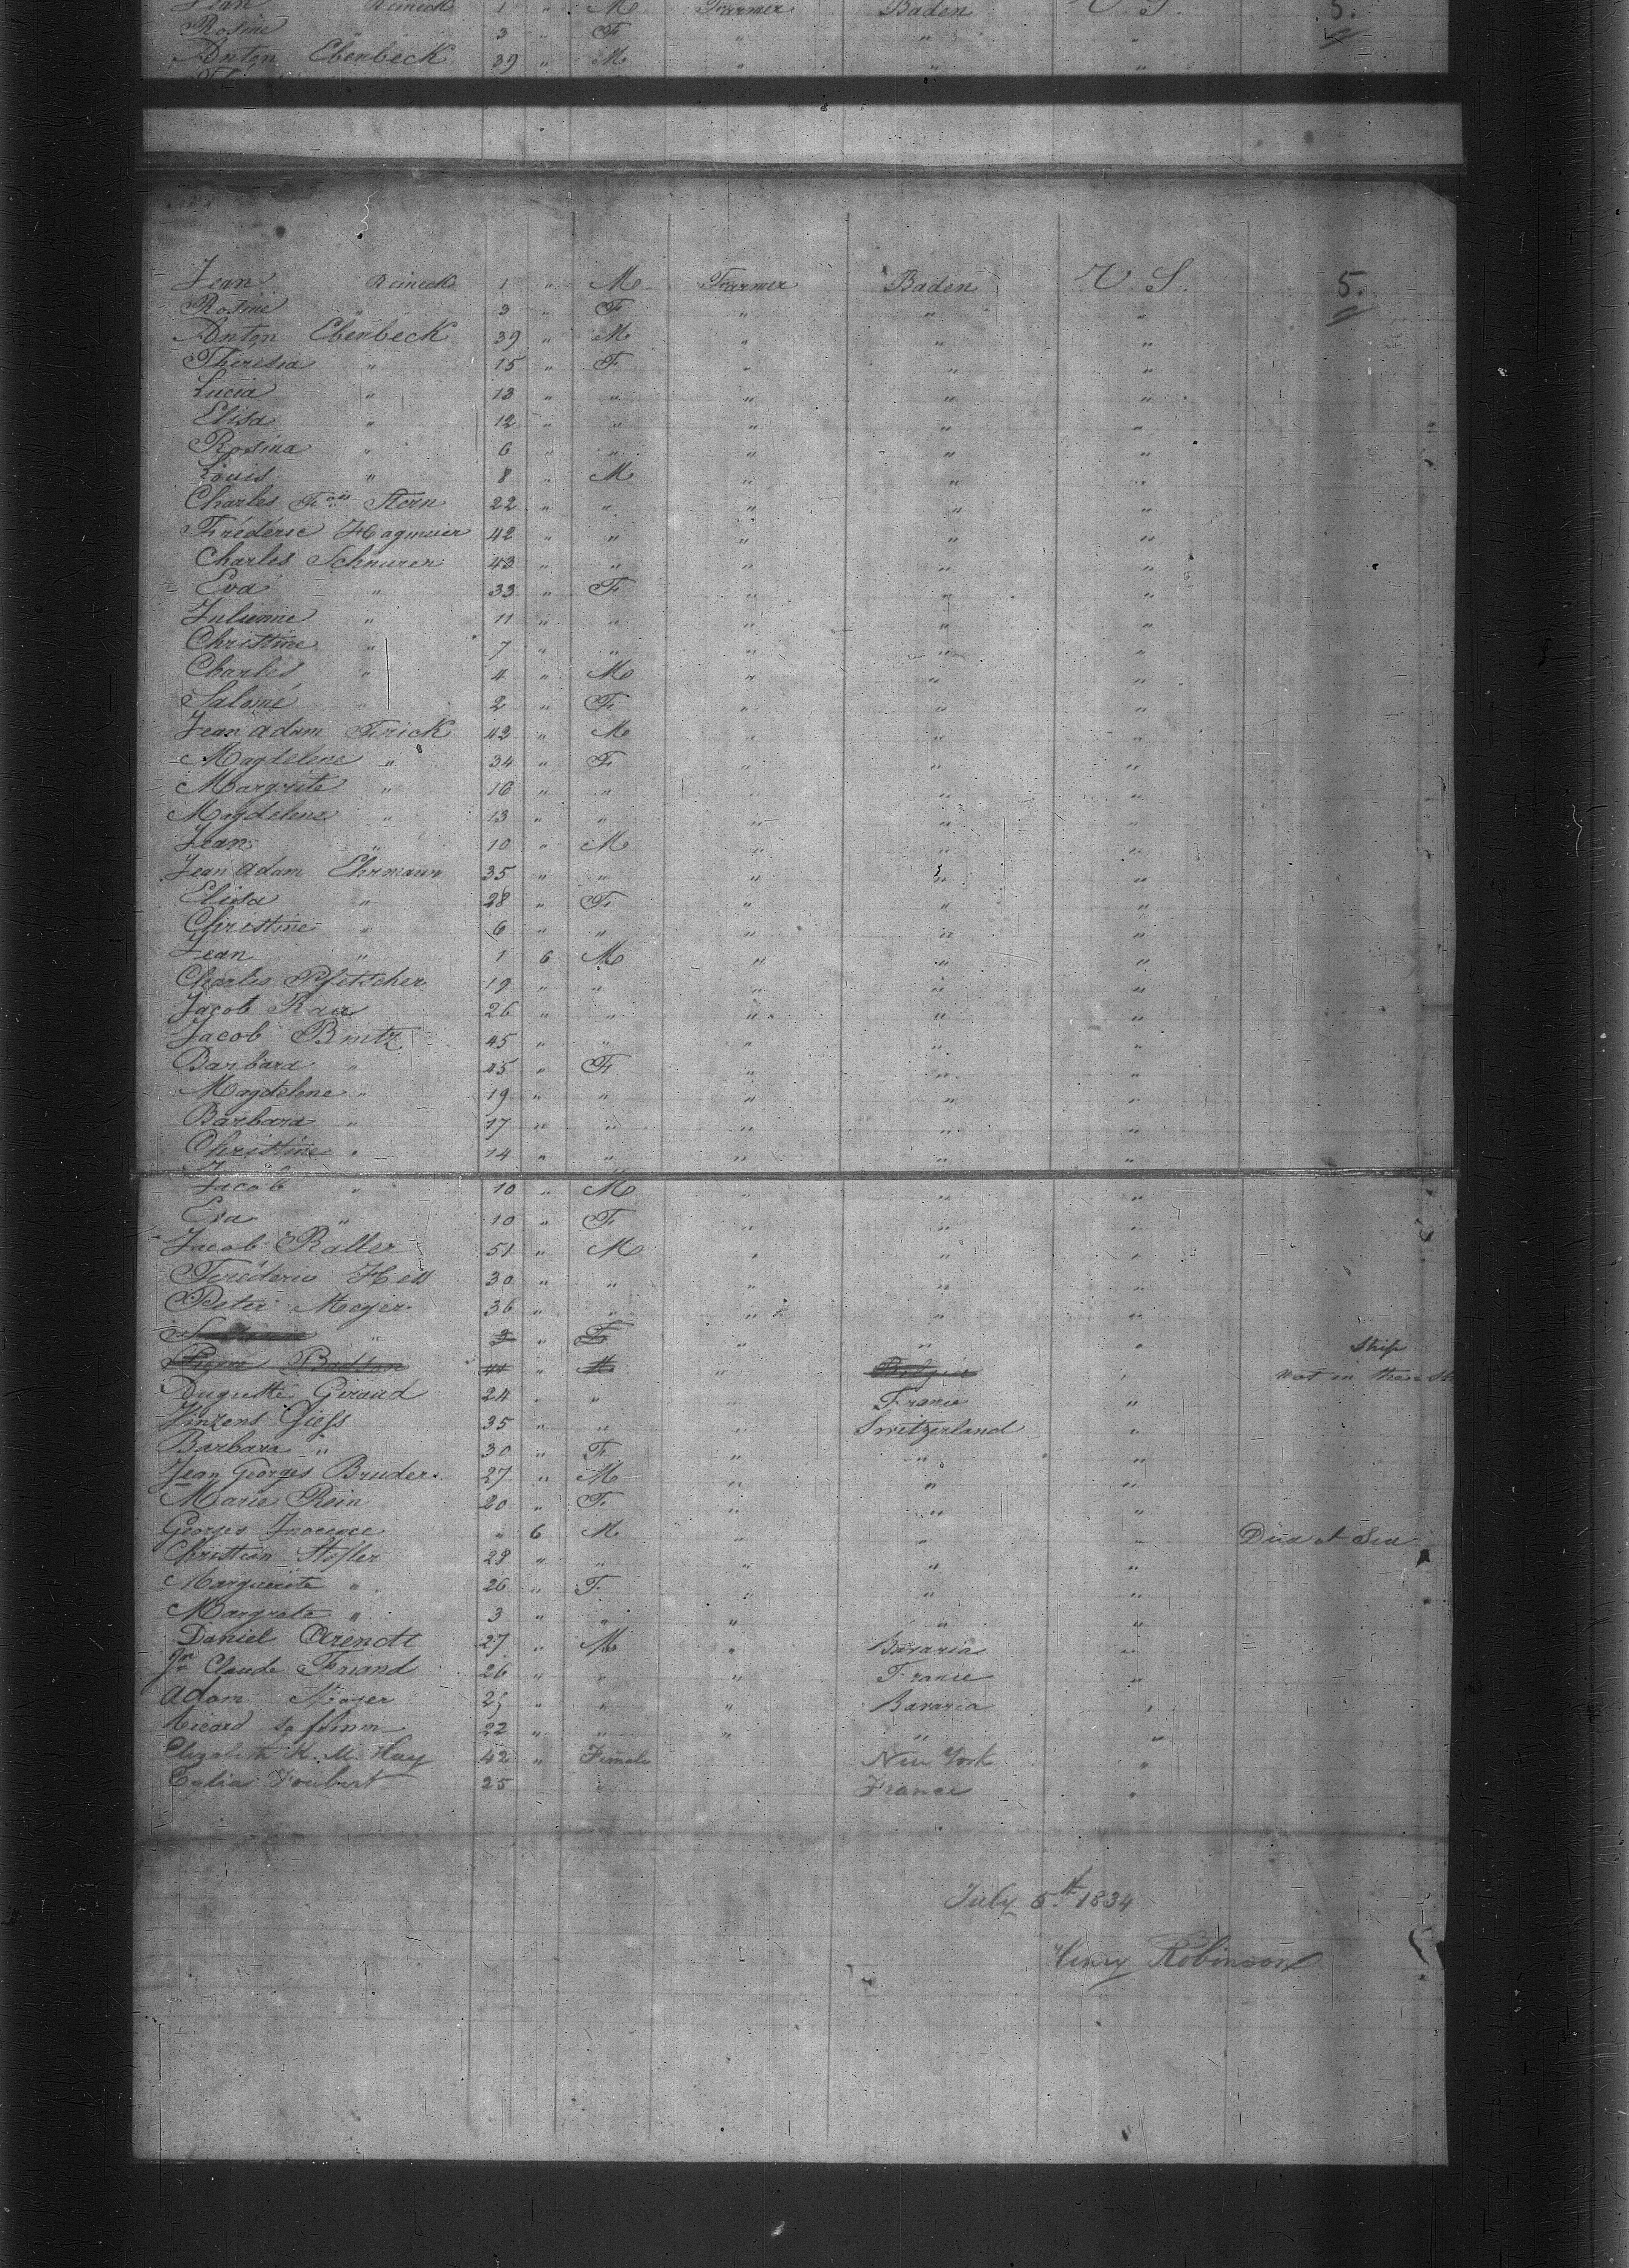 Jean Reineck 1 " M Farmer Baden U. S. 5.
Rosine " 3 " F " " "
Anton Ebenbeck 39 " M " " "
Jean Reineck 1 " M Farmer Baden U. S. 5.
Rosine " 3 " F " " "
Anton Ebenbeck 39 " M " " "
Theresia " 15 " F " " "
Lucia " 13 " " " " "
Elisa " 12 " " " " "
Rosina " 6 " " " " "
Louis " 8 " M " " "
Charles Fçois Stern 22 " " " " "
Fréderic Hagmeier 42 " " " " "
Charles Schnurer 43 " " " " "
Eva " 33 " F " " "
Julienne " 11 " " " " "
Christine " 7 " " " " "
Charles " 4 " M " " "
Salomé " 2 " F " " "
Jean Adam Frick 42 " M " " "
Magdelene " 34 " F " " "
Margrite " 16 " " " " "
Magdelene " 13 " " " " "
Jean " 10 " M " " "
Jean Adam Ehrmann 35 " " " " "
Elisa " 28 " F " " "
Christine " 6 " " " " "
Jean " 1 6 M " " "
Charles Pfetscher 19 " " " " "
Jacob Rau 26 " " " " "
Jacob Bintz 45 " " " " "
Barbara " 45 " F " " "
Magdelene " 19 " " " " "
Barbara " 17 " " " " "
Christine " 14 " " " " "
Jacob " 10 " M " " "
Eva " 10 " F " " "
Jacob Raller 51 " M " " "
Fréderic Hess 30 " " " " "
Peter Meyer 36 " " " " "
" 3 " F " " " Ship
Pierre Budson 44 " M " Belgie " not in the
Auguste Giraud 24 " " " France "
Vinzens Giess 35 " " " Switzerland "
Barbara " 30 " F " " "
Jean Georges Bruder 27 " M " " "
Marie Rein 20 " F " " "
Georges Inocence " 6 M " " " Died at Sea
Christian Stofler 28 " " " " "
Marguerite " 26 " F " " "
Margrete " 3 " " " " "
Daniel Arendt 27 " M " Bavaria "
Claude Friand 26 " " " France "
Adam Mayer 25 " " " Bavaria "
22 " " " " "
Elizabeth K. M. Hay 42 " Female New York "
Joubert 25 " France "
July 5th 1834
Henry Robinson